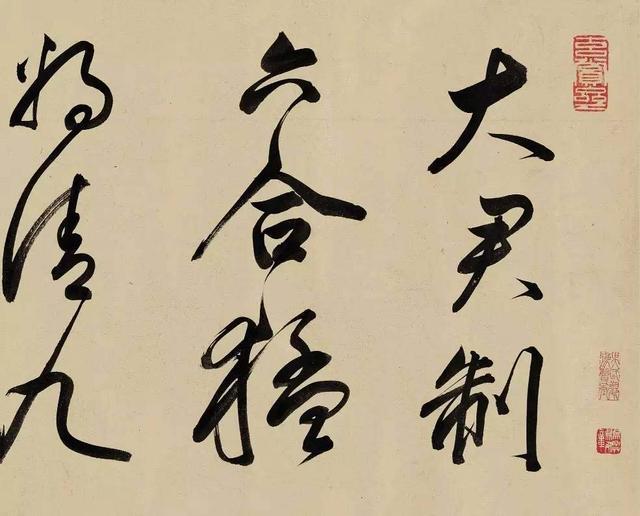 大君制
六合猛
将清九